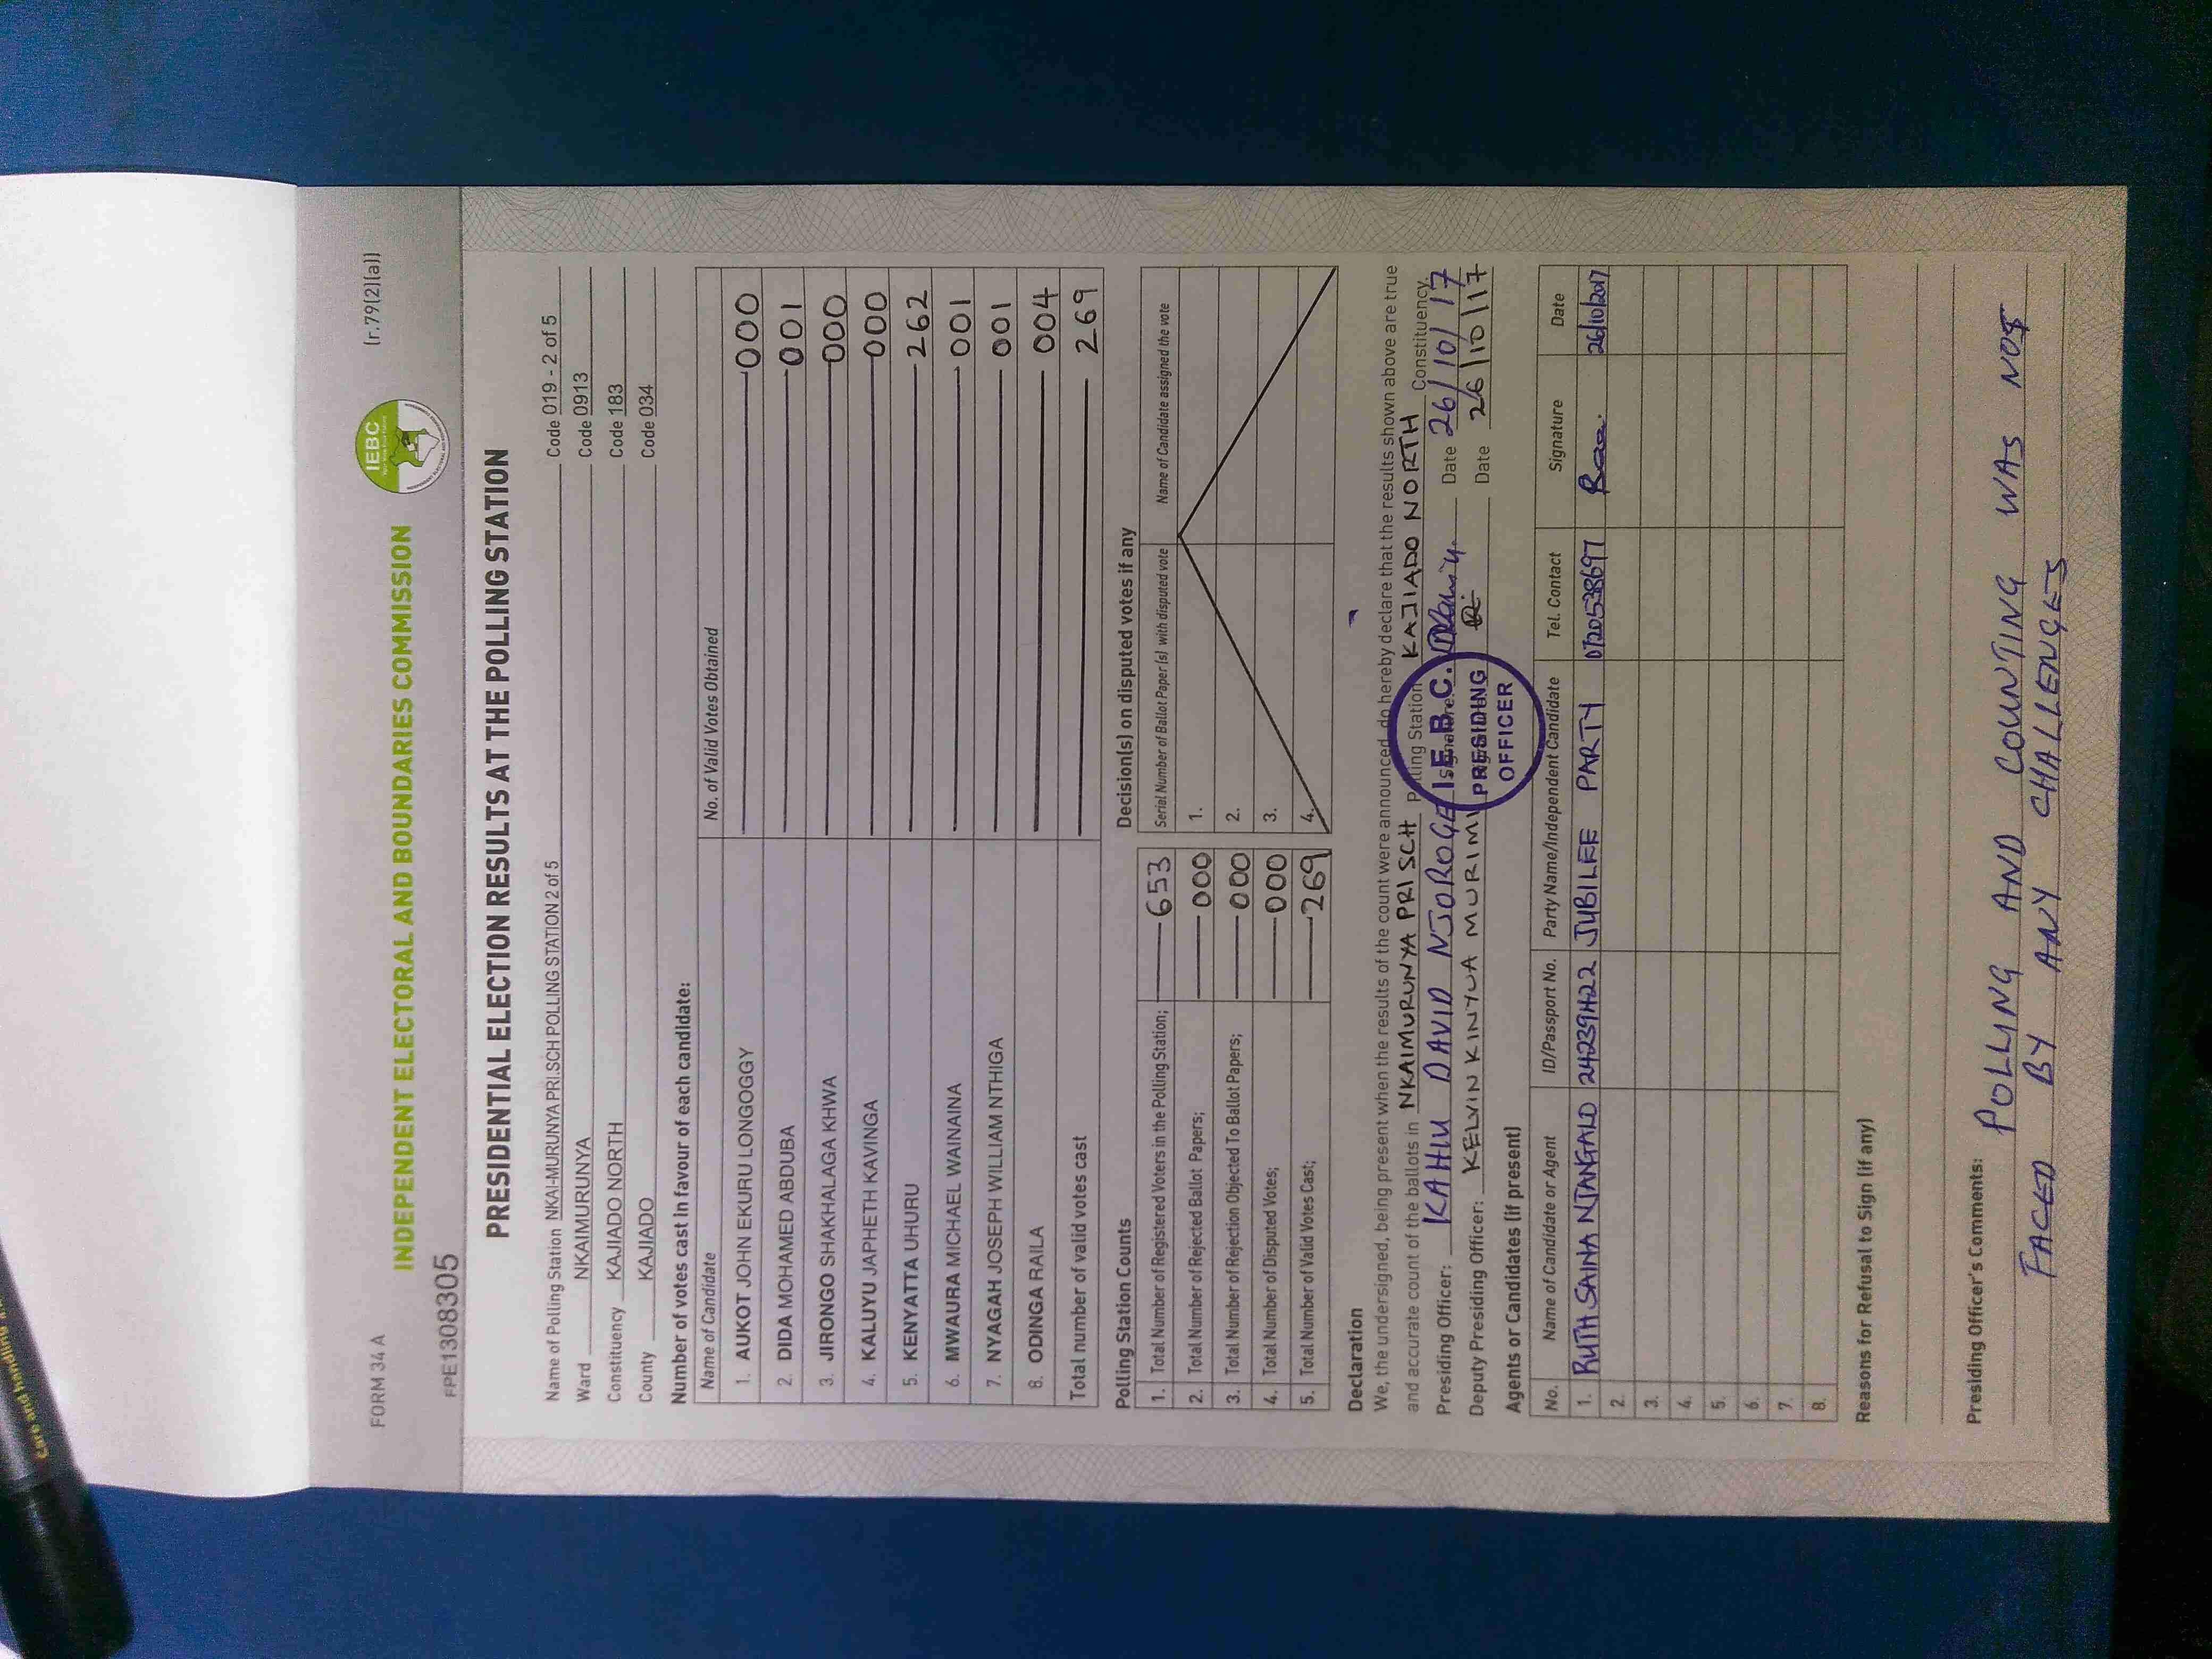 Care and handling
FORM 34 A
(r.79(2)(a))
INDEPENDENT ELECTORAL AND BOUNDARIES COMMISSION
IEBC
FPE1308305
PRESIDENTIAL ELECTION RESULTS AT THE POLLING STATION
Name of Polling Station NKAI-MURUNYA PRI.SCH POLLING STATION 2 of 5 Code 019 - 2 of 5
Ward NKAIMURUNYA Code 0913
Constituency KAJIADO NORTH Code 183
County KAJIADO Code 034
Number of votes cast in favour of each candidate:
Name of Candidate No. of Valid Votes Obtained
1. AUKOT JOHN EKURU LONGOGGY 000
2. DIDA MOHAMED ABDUBA 001
3. JIRONGO SHAKHALAGA KHWA 000
4. KALUYU JAPHETH KAVINGA 000
5. KENYATTA UHURU 262
6. MWAURA MICHAEL WAINAINA 001
7. NYAGAH JOSEPH WILLIAM NTHIGA 001
8. ODINGA RAILA 004
Total number of valid votes cast 269
Polling Station Counts
1. Total Number of Registered Voters in the Polling Station; 653
2. Total Number of Rejected Ballot Papers; 000
3. Total Number of Rejection Objected To Ballot Papers; 000
4. Total Number of Disputed Votes; 000
5. Total Number of Valid Votes Cast; 269
Decision(s) on disputed votes if any
Serial Number of Ballot Paper(s) with disputed vote Name of Candidate assigned the vote
1.
2.
3.
4.
Declaration
We, the undersigned, being present when the results of the count were announced, do hereby declare that the results shown above are true
and accurate count of the ballots in NKAIMURUNYA PRI SCH Polling Station KAJIADO NORTH Constituency.
Presiding Officer: KAHIU DAVID NJOROGE Signature: Date 26/10/17
Deputy Presiding Officer: KELVIN KINYUA MURIMI Date 26/10/17
I.E.B.C.
PRESIDING
OFFICER
Agents or Candidates (if present)
No. Name of Candidate or Agent ID/Passport No. Party Name/Independent Candidate Tel. Contact Signature Date
1. RUTH SAINA 24239422 JUBILEE PARTY 0720538697 26/10/2017
2.
3.
4.
5.
6.
7.
8.
Reasons for Refusal to Sign (if any)
Presiding Officer's Comments: POLLING AND COUNTING WAS NOT
FACED BY ANY CHALLENGES